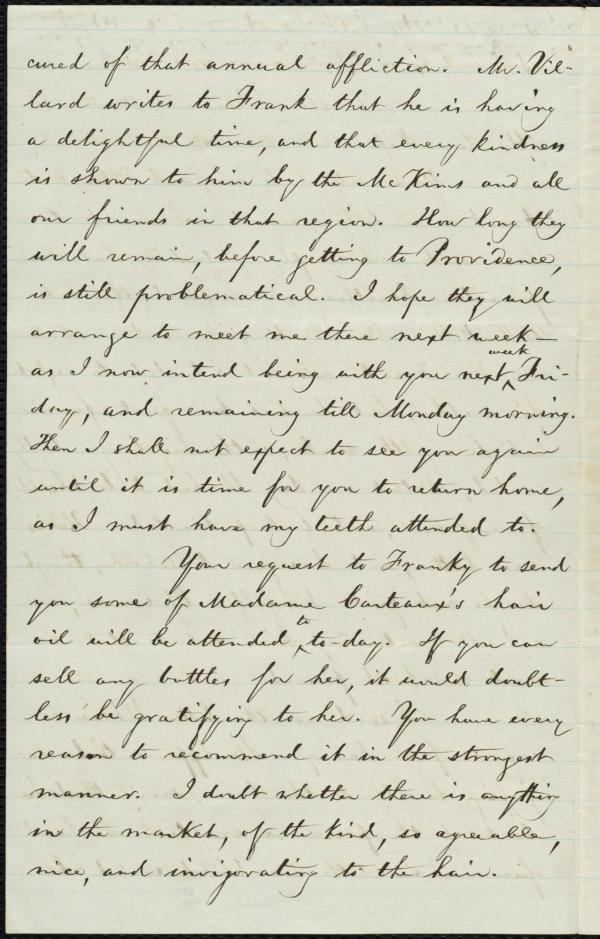 cured of that annual affliction. Mr. Vil-
lard writes to Frank that he is having
a delightful time, and that every kindness
is shown to him by the McKims and all
our friends in that region. How long they
will remain, before getting to Providence,
is still problematical. I hope they will
arrange to meet me there next week—
as I now intend being with you next week Fri-
day, and remaining till Monday morning.
Then I shall not expect to see you again
until it is time for you to return home,
as I must have my teeth attended to.
Your request to Franky to send
you some of Madame Carteaux's hair
oil will be attended to to-day. If you can
sell any bottles for her, it would doubt-
less be gratifying to her. You have every
reason to recommend it in the strongest
manner. I doubt whether there is anything
in the market, of the kind, so agreeable,
nice, and invigorating to the hair.